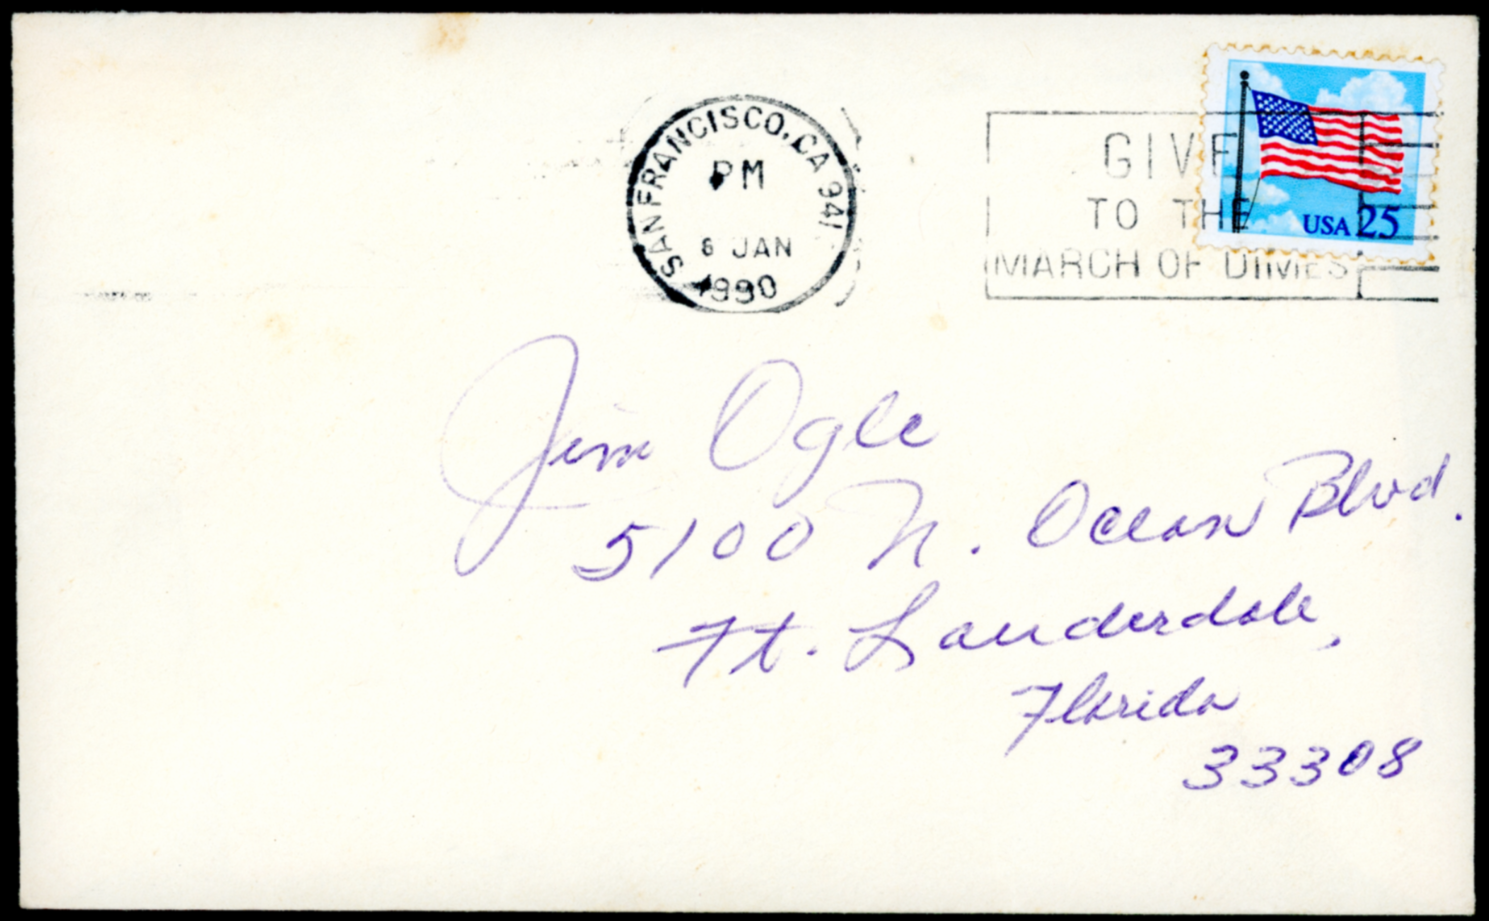 SAN FRANCISCO, CA 941
PM
6 JAN
1990
GIVE
TO THE
MARCH OF DIMES
USA 25
Jim Ogle
5100 N. Ocean Blvd.
Ft. Lauderdale,
Florida
33308